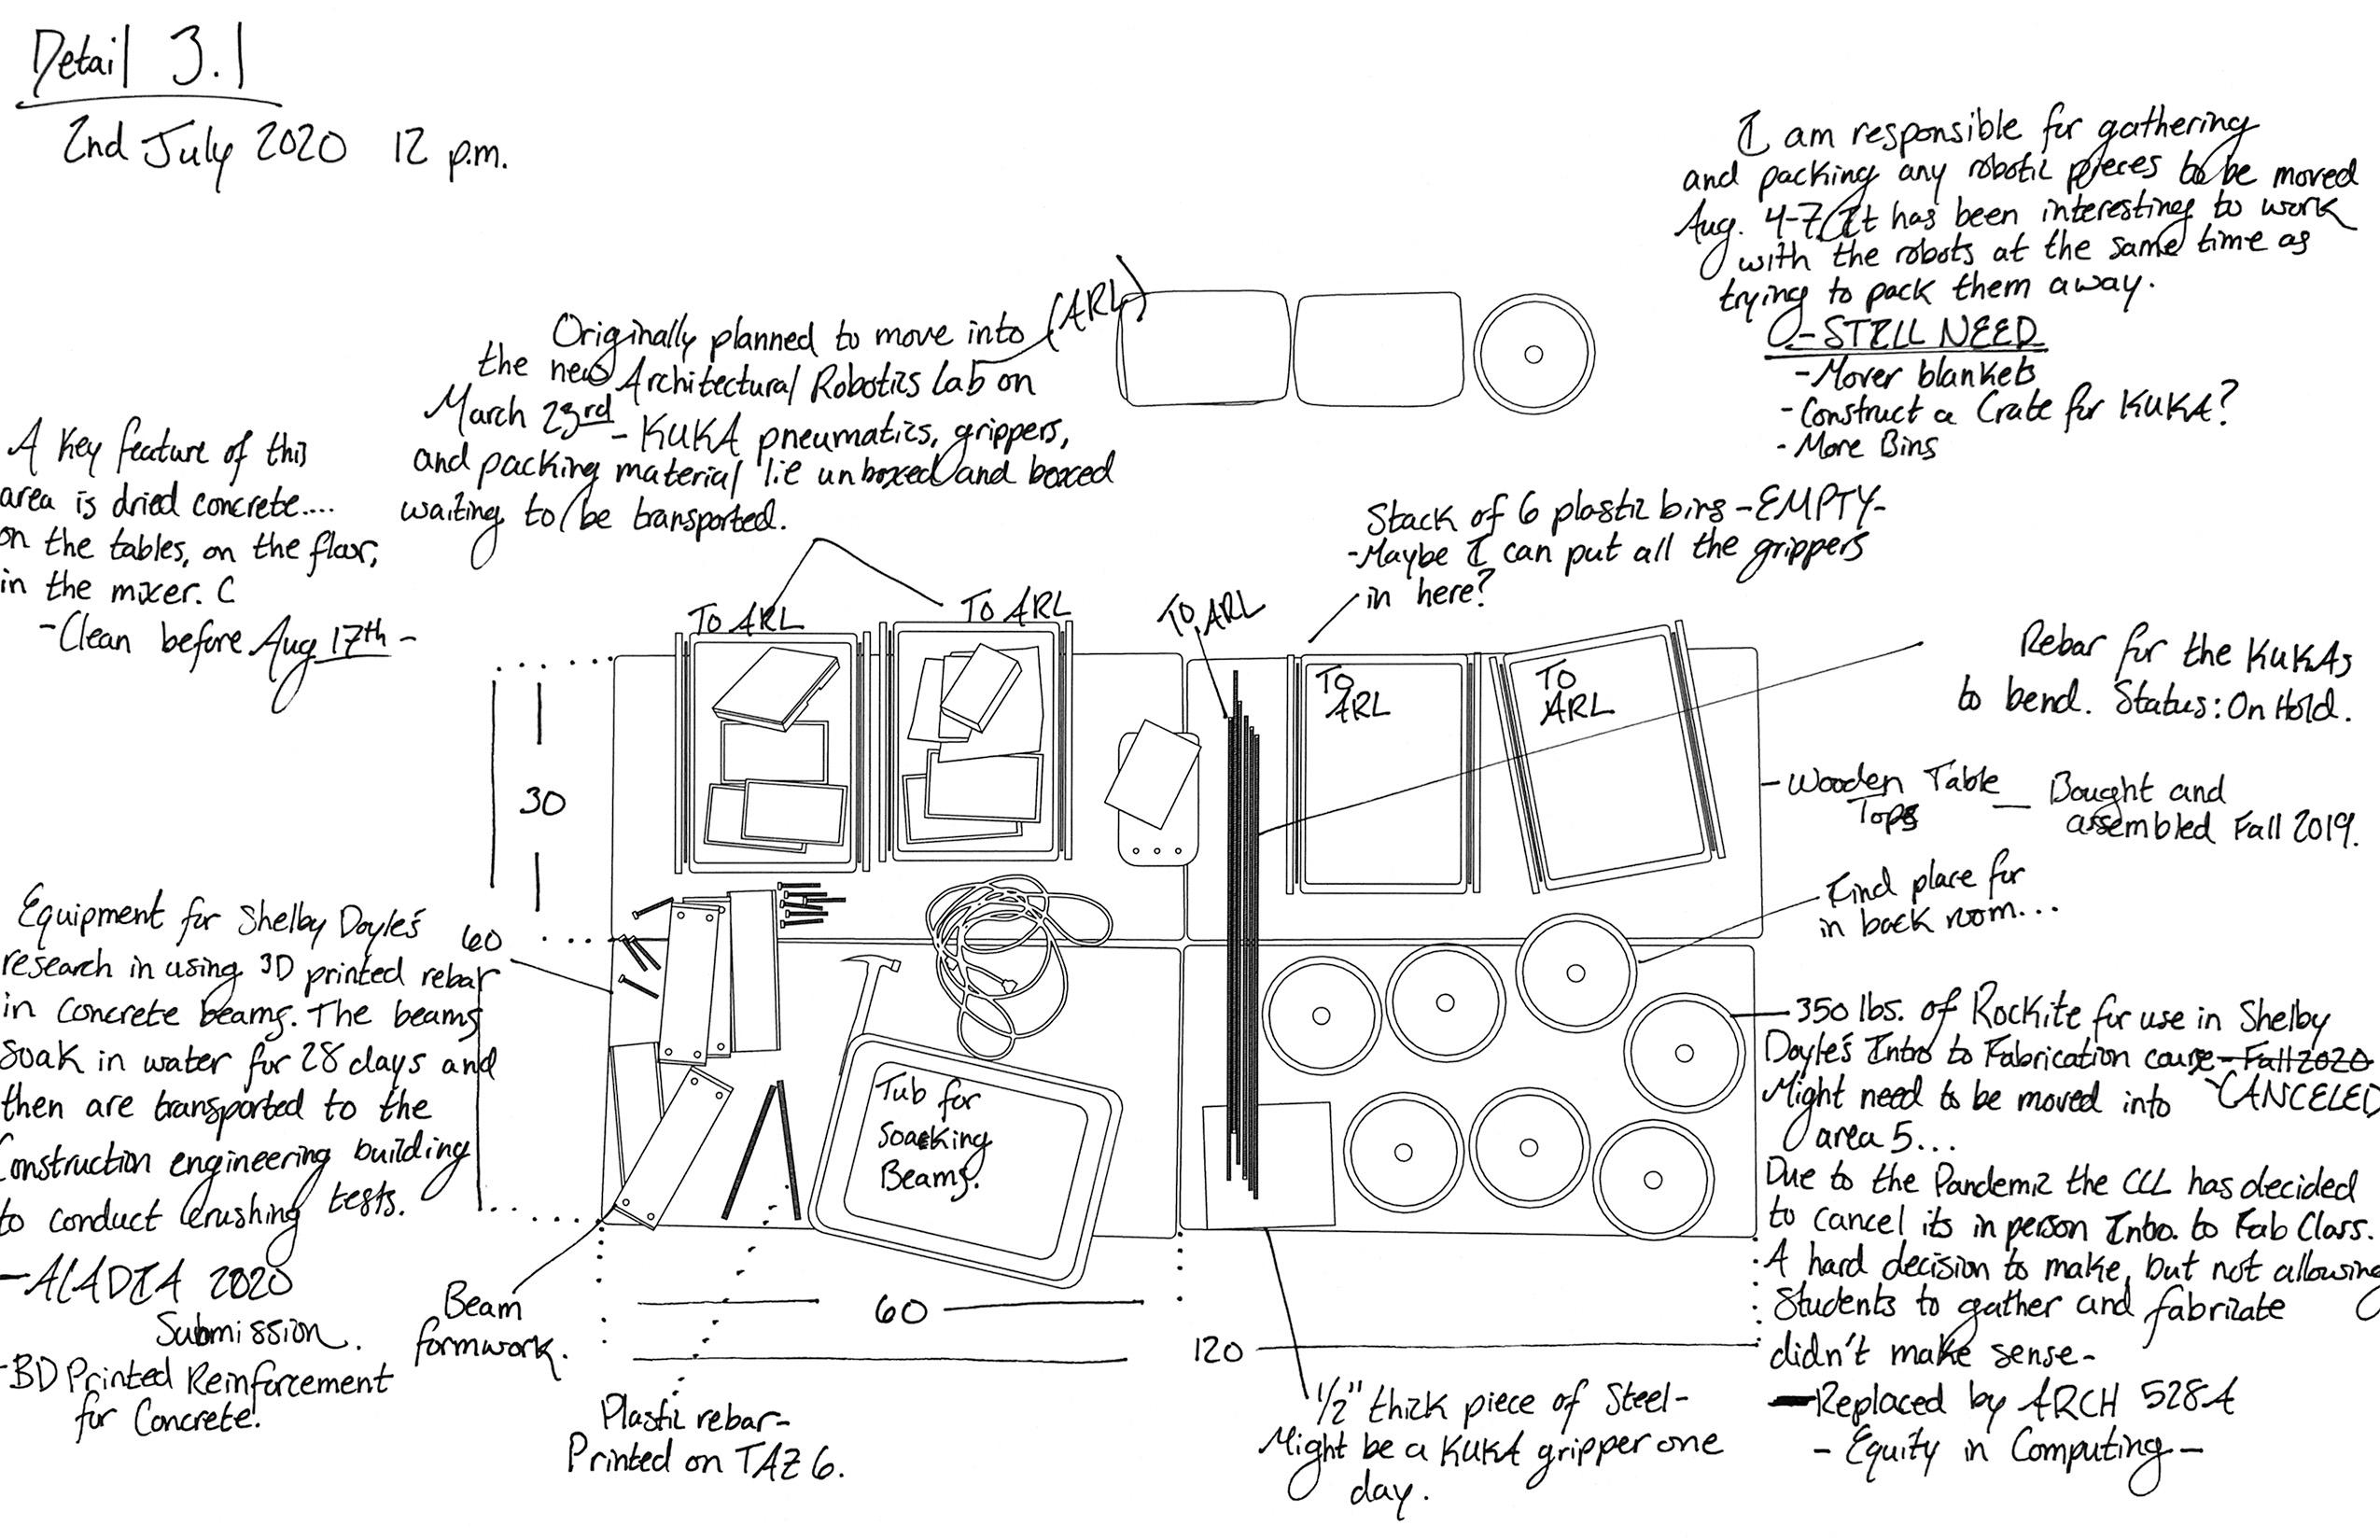 Detail 3.1
2nd July 2020 12 p.m.
I am responsible for gathering
and packing any robotic pieces to be moved
Aug. 4-7. It has been interesting to work
with the robots at the same time as
trying to pack them away.
- STILL NEED
- Mover blankets
- Construct a Crate for KUKA?
- More Bins
Originally planned to move into (ARL)
the new Architectural Robotics Lab on
March 23rd - KUKA pneumatics, grippers,
and packing material lie unboxed and boxed
waiting to be transported.
A key feature of this
area is dried concrete....
on the tables, on the floor,
in the mixer. C
- Clean before Aug 17th -
Stack of 6 plastic bins - EMPTY -
- Maybe I can put all the grippers
in here?
TO ARL
TO ARL
TO ARL
TO
ARL
TO
ARL
Rebar for the KUKAs
to bend. Status: On Hold.
30
- Wooden Table
Tops
- Bought and
assembled Fall 2019.
- Find place for
in back room...
Equipment for Shelby Doyle's
research in using 3D printed rebar
in concrete beams. The beams
soak in water for 28 days and
then are transported to the
Construction engineering building
to conduct crushing tests.
- ACADIA 2020
Submission.
- 3D Printed Reinforcement
for Concrete.
60
Tub for
Soaking
Beams.
- 350 lbs. of Rockite for use in Shelby
Doyle's Intro to Fabrication course - Fall 2020
Might need to be moved into CANCELED
area 5...
Due to the Pandemic the CCL has decided
to cancel its in person Intro. to Fab Class.
A hard decision to make, but not allowing
Students to gather and fabricate
didn't make sense -
- Replaced by ARCH 528A
- Equity in Computing -
Beam
formwork.
60
120
Plastic rebar -
Printed on TAZ 6.
1/2" thick piece of Steel -
Might be a KUKA gripper one
day.